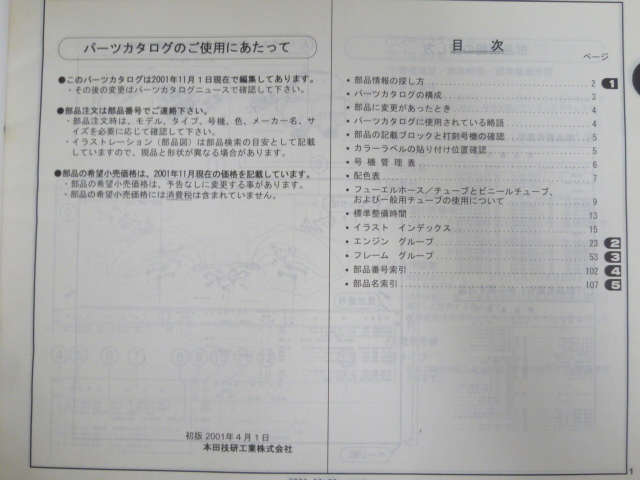 パーツカタログのご使用にあたって
●このパーツカタログは2001年11月1日現在で編集してあります。
・その後の変更はパーツカタログニュースで確認して下さい。
●部品注文は部品番号でご連絡下さい。
・部品注文時は、モデル、タイプ、号機、色、メーカー名、サ
イズを必要に応じて確認して下さい。
・イラストレーション（部品図）は部品検索の目安として記載
していますので、現品と形状が異なる場合があります。
●部品の希望小売価格は、2001年11月現在の価格を記載しています。
・部品の希望小売価格は、予告なしに変更する事があります。
・部品の希望小売価格には消費税は含まれていません。
初版 2001年4月1日
本田技研工業株式会社
目 次
ページ
• 部品情報の探し方 2 1
• パーツカタログの構成 3
• 部品に変更があったとき 4
• パーツカタログに使用されている略語 4
• 部品の記載ブロックと打刻号機の確認 5
• カラーラベルの貼り付け位置確認 5
• 号 機 管 理 表 6
• 配色表 7
• フューエルホース／チューブとビニールチューブ、
および一般用チューブの使用について 9
• 標準整備時間 13
• イラスト インデックス 15
• エンジン グループ 23 2
• フレーム グループ 53 3
• 部品番号索引 102 4
• 部品名索引 107 5
1